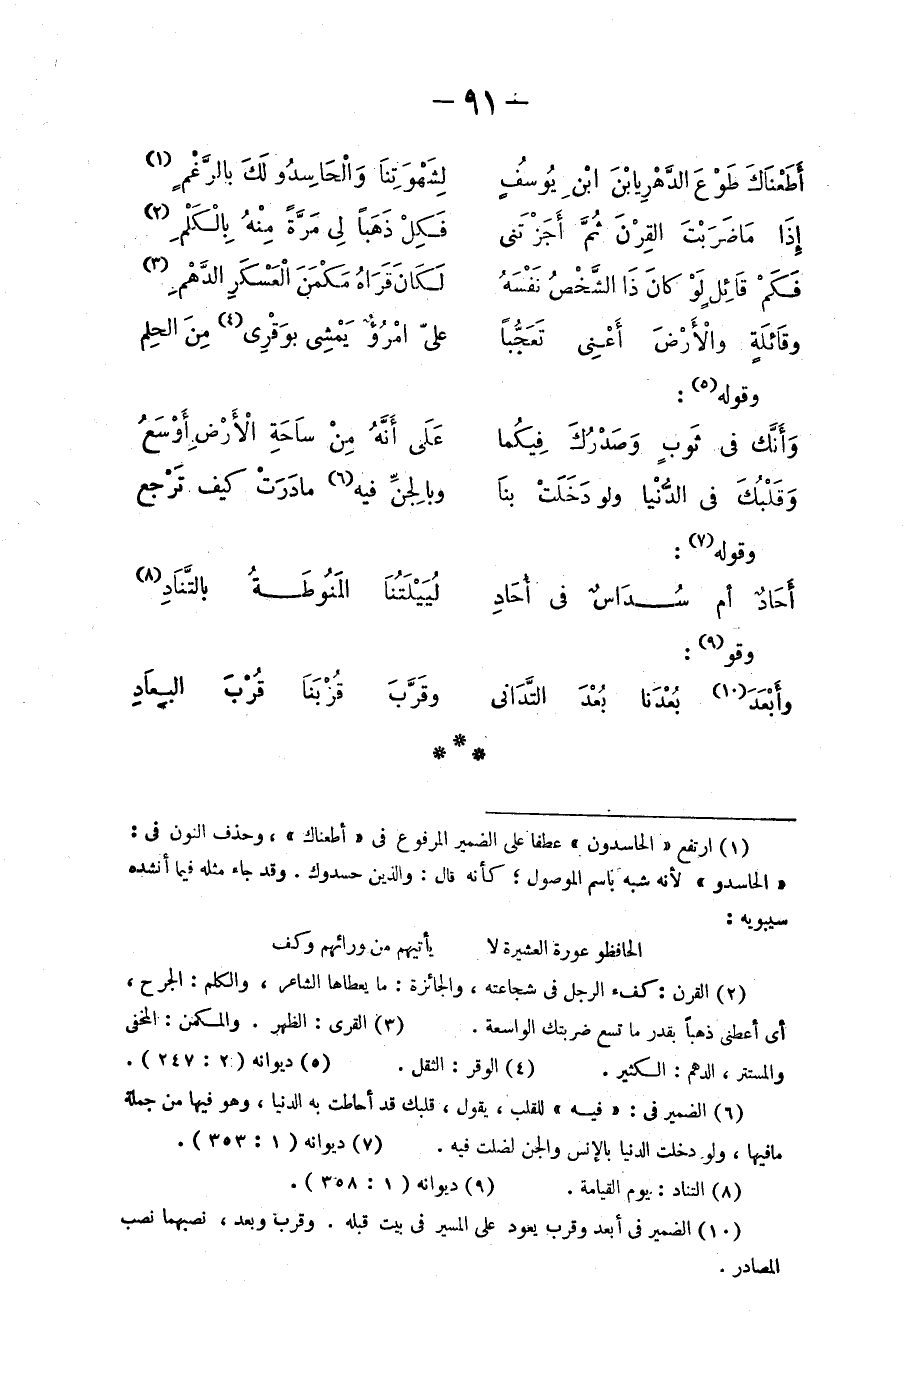 — ٩١ —
أَطَعْنَاكَ طَوْعَ الدَّهْرِ يا بْنَ ابْنِ يُوسفٍ لِشَهْوَتِنَا وَالْحَاسِدُو لَكَ بالرَّغْمِ (١)
إِذَا ماضَرَبْتَ القِرْنَ ثُمَّ أَجَزْتَنى فَكِلْ ذَهَباً لِى مَرَّةً مِنْهُ بِالْكَلْمِ (٢)
فَكَمْ قائِلٍ لَوْ كانَ ذَا الشَّخْصُ نَفْسَهُ لَكَانَ قَرَاهُ مَكْمَنَ الْعَسْكَرِ الدَّهْمِ (٣)
وقَائلَةٍ والْأَرْضَ أَعْنِى تَعَجُّباً علىّ امْرُؤٌ يَمْشِى بوَقْرِى (٤) مِنَ الحلِم
وقوله (٥) :
وَأَنَّك فى ثَوبٍ وَصَدْرُكَ فِيكُما عَلَى أَنَّهُ مِنْ ساَحَةِ الْأَرْضِ أَوْسَعُ
وَقَلْبُكَ فى الدُّنْيا ولو دَخَلَتْ بناَ وبالِجنِّ فيه (٦) مادَرَتْ كيف تَرْجع
وقوله (٧) :
أَحَادٌ أم سُــدَاسٌ فى أُحَادِ لُيَيْلَتُنَا المَنُوطَــةُ بالتَّنَادِ (٨)
وقو (٩) :
وأَبْعَدَ (١٠) بُعْدَنا بُعْدَ التَّدَانى وقَرَّبَ قُرْبَنَا قُرْبَ البِعَادِ
* * *
(١) ارتفع « الحاسدون » عطفا على الضمير المرفوع فى « أطعناك » ، وحذف النون فى :
« الحاسدو » لأنه شبه باسم الموصول ؛ كأنه قال : والذين حسدوك . وقد جاء مثله فيما أنشده
سيبويه :
الحافظو عورة العشيرة لا يأتيهم من ورائهم وكف
(٢) القرن : كفء الرجل فى شجاعته ، والجائزة : ما يعطاها الشاعر ، والكلم : الجرح ،
أى أعطنى ذهباً بقدر ما تسع ضربتك الواسعة . (٣) القرى : الظهر . والمكمن : المخفى
والمستتر ، الدهم : الكثير . (٤) الوقر : الثقل . (٥) ديوانه ( ٢ : ٢٤٧ ) .
(٦) الضمير فى : « فيه » للقلب ، يقول ، قلبك قد أحاطت به الدنيا ، وهو فيها من جملة
مافيها ، ولو دخلت الدنيا بالإنس والجن لضلت فيه . (٧) ديوانه ( ١ : ٣٥٣ ) .
(٨) التناد : يوم القيامة . (٩) ديوانه ( ١ : ٣٥٨ ) .
(١٠) الضمير فى أبعد وقرب يعود على المسير فى بيت قبله . وقرب وبعد ، نصبهما نصب
المصادر .